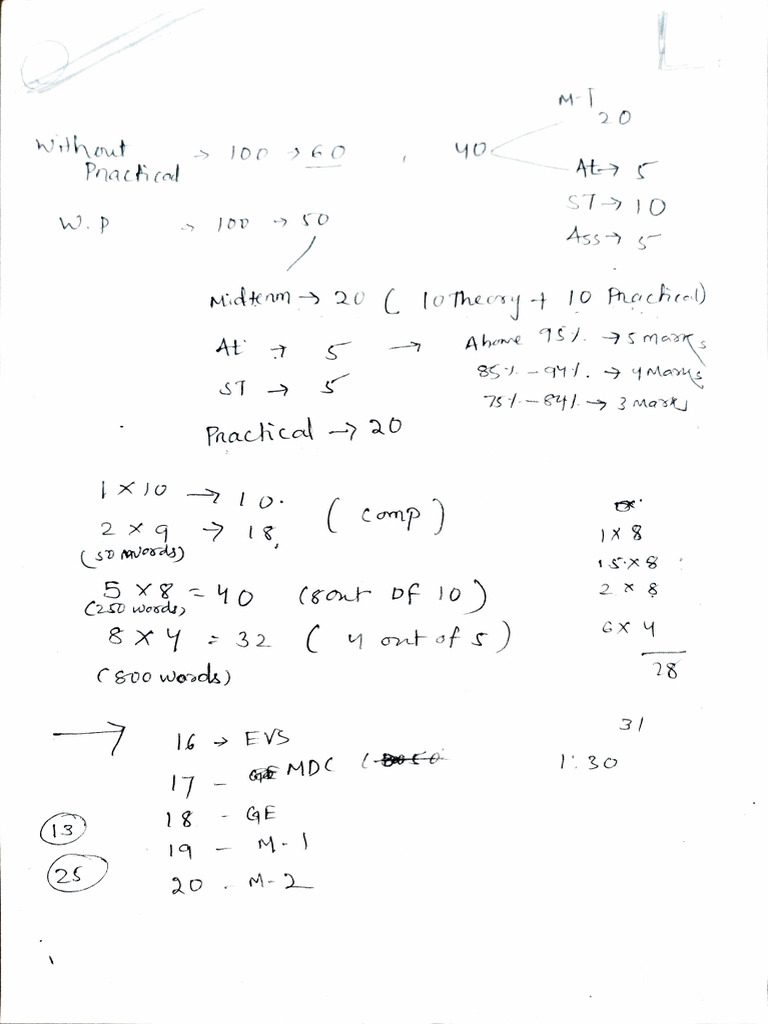 M-T
20
Without Practical → 100 → 60 , 40
At → 5
ST → 10
Ass → 5
W.P → 100 → 50
Midterm → 20 ( 10 Theory + 10 Practical)
At → 5 → Above 95% → 5 marks
85% - 94% → 4 Marks
ST → 5
75% - 84% → 3 Marks
Practical → 20
1 × 10 → 10.
2 × 9 → 18, ( comp )
(50 words)
5 × 8 = 40 (8 out of 10)
(250 words)
8 × 4 = 32 ( 4 out of 5)
(800 words)
1 × 8
15 × 8
2 × 8
6 × 4
28
→ 16 → EVS
17 - MDC (
18 - GE
19 - M-1
20 - M-2
31
1:30
13
25